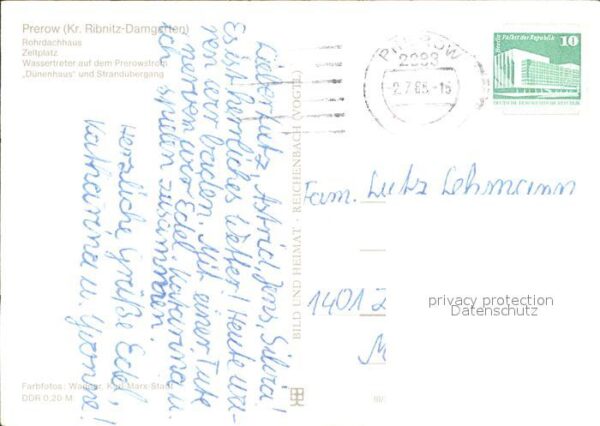 Prerow (Kr. Ribnitz-Damgarten)
Rohrdachhaus
Zeltplatz
Wasserturm auf dem Prerowstrom
„Dünenhaus" und Strandübergang
Lieber Lutz, Astrid, Jens, Silvia!
Es ist herrliches Wetter! Heute wa-
ren wir baden. Mit einer Tute
nerven wir Edel. Katarina u.
ich spielen zusammen.
Herzliche Grüße Edel,
Katharina u. Yvonne!
Farbfotos: Karl-Marx-Stadt
DDR 0,20 M
BILD UND HEIMAT · REICHENBACH (VOGTL.)
PREROW
2383
-2.7.85.-15
Berlin Palast der Republik
10
DEUTSCHE DEMOKRATISCHE REPUBLIK
Fam. Lutz Lehmann
1401 Z
M
privacy protection
Datenschutz